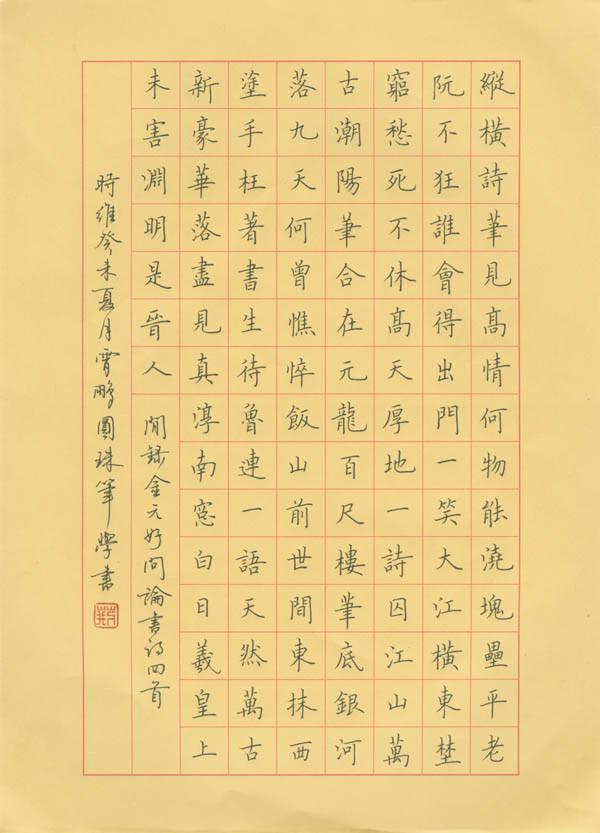 縱橫詩筆見高情何物能澆塊壘平老
阮不狂誰會得出門一笑大江橫東埜
窮愁死不休高天厚地一詩囚江山萬
古潮陽筆合在元龍百尺樓筆底銀河
落九天何曾憔悴飯山前世間東抹西
塗手枉著書生待魯連一語天然萬古
新豪華落盡見真淳南窓白日羲皇上
未害淵明是晉人 閒錄金元好问論書詩四首
時維癸未夏月霄鵬圓珠筆學書